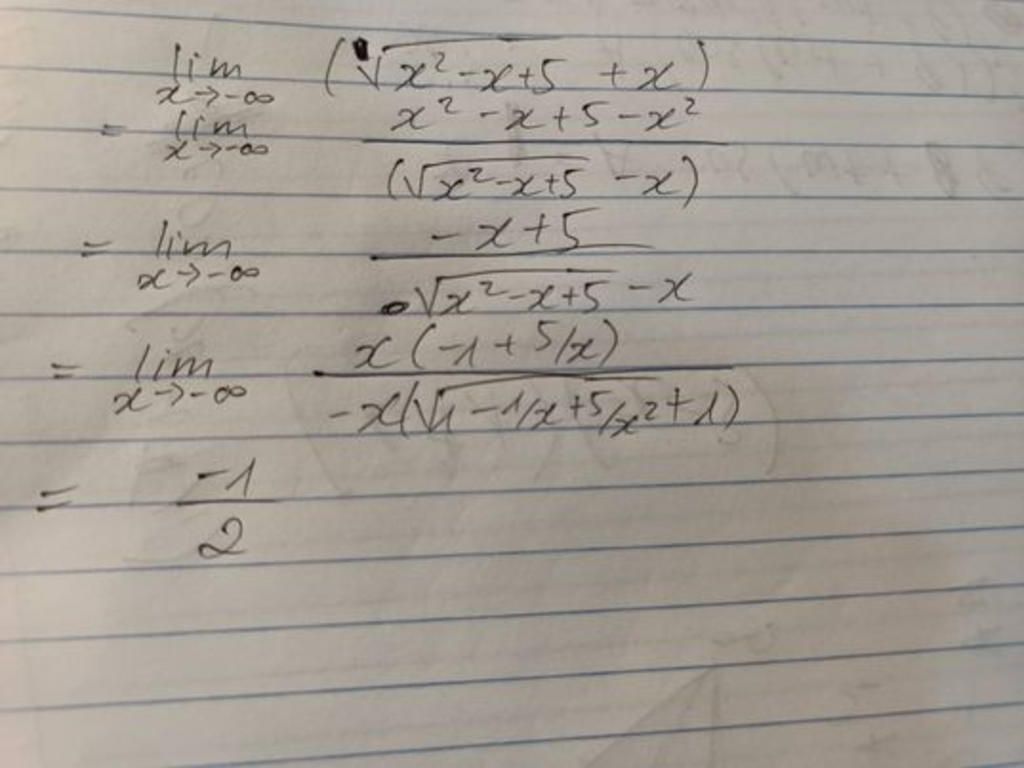 lim x→-∞ (√x²-x+5 + x)
= lim x→-∞ x²-x+5-x² / (√x²-x+5 - x)
= lim x→-∞ -x+5 / √x²-x+5 - x
= lim x→-∞ x(-1+5/x) / -x(√1-1/x+5/x²+1)
= -1/2